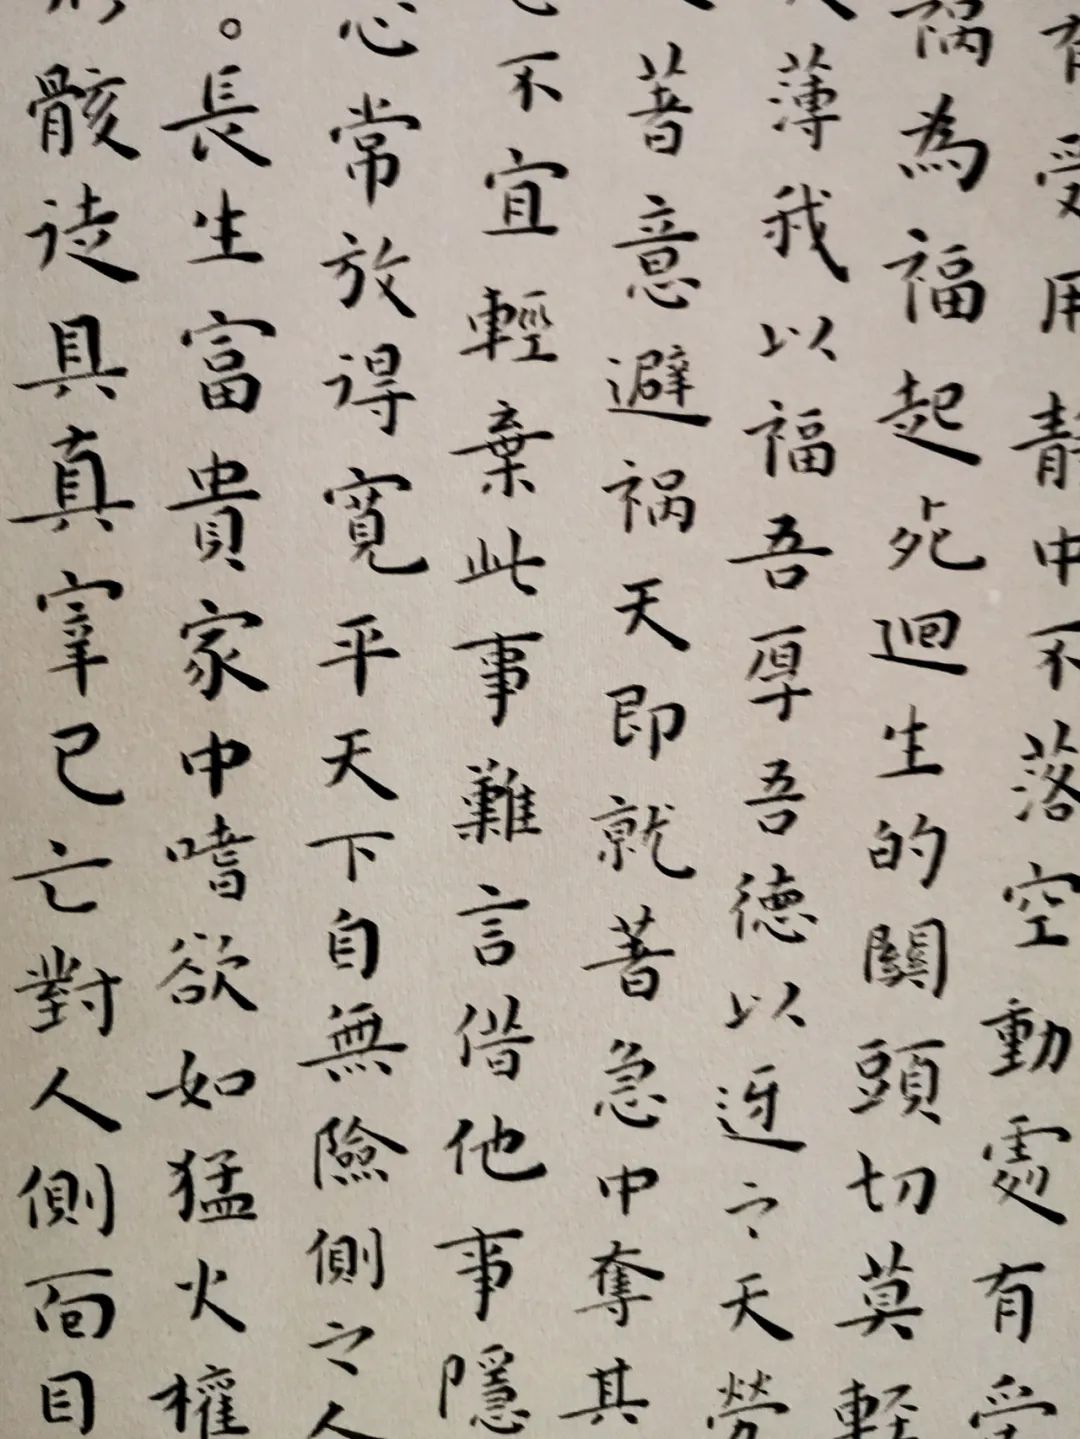 有受用静中不落空動處有受
祸為福起死迴生的關頭切莫軽
薄我以福吾厚吾德以迓之天勞
著意避祸天即就著急中奪其
不宜輕棄此事難言借他事隱
心常放得寬平天下自無險側之人
。長生富貴家中嗜欲如猛火權
骸徒具真宰已亡對人側面目